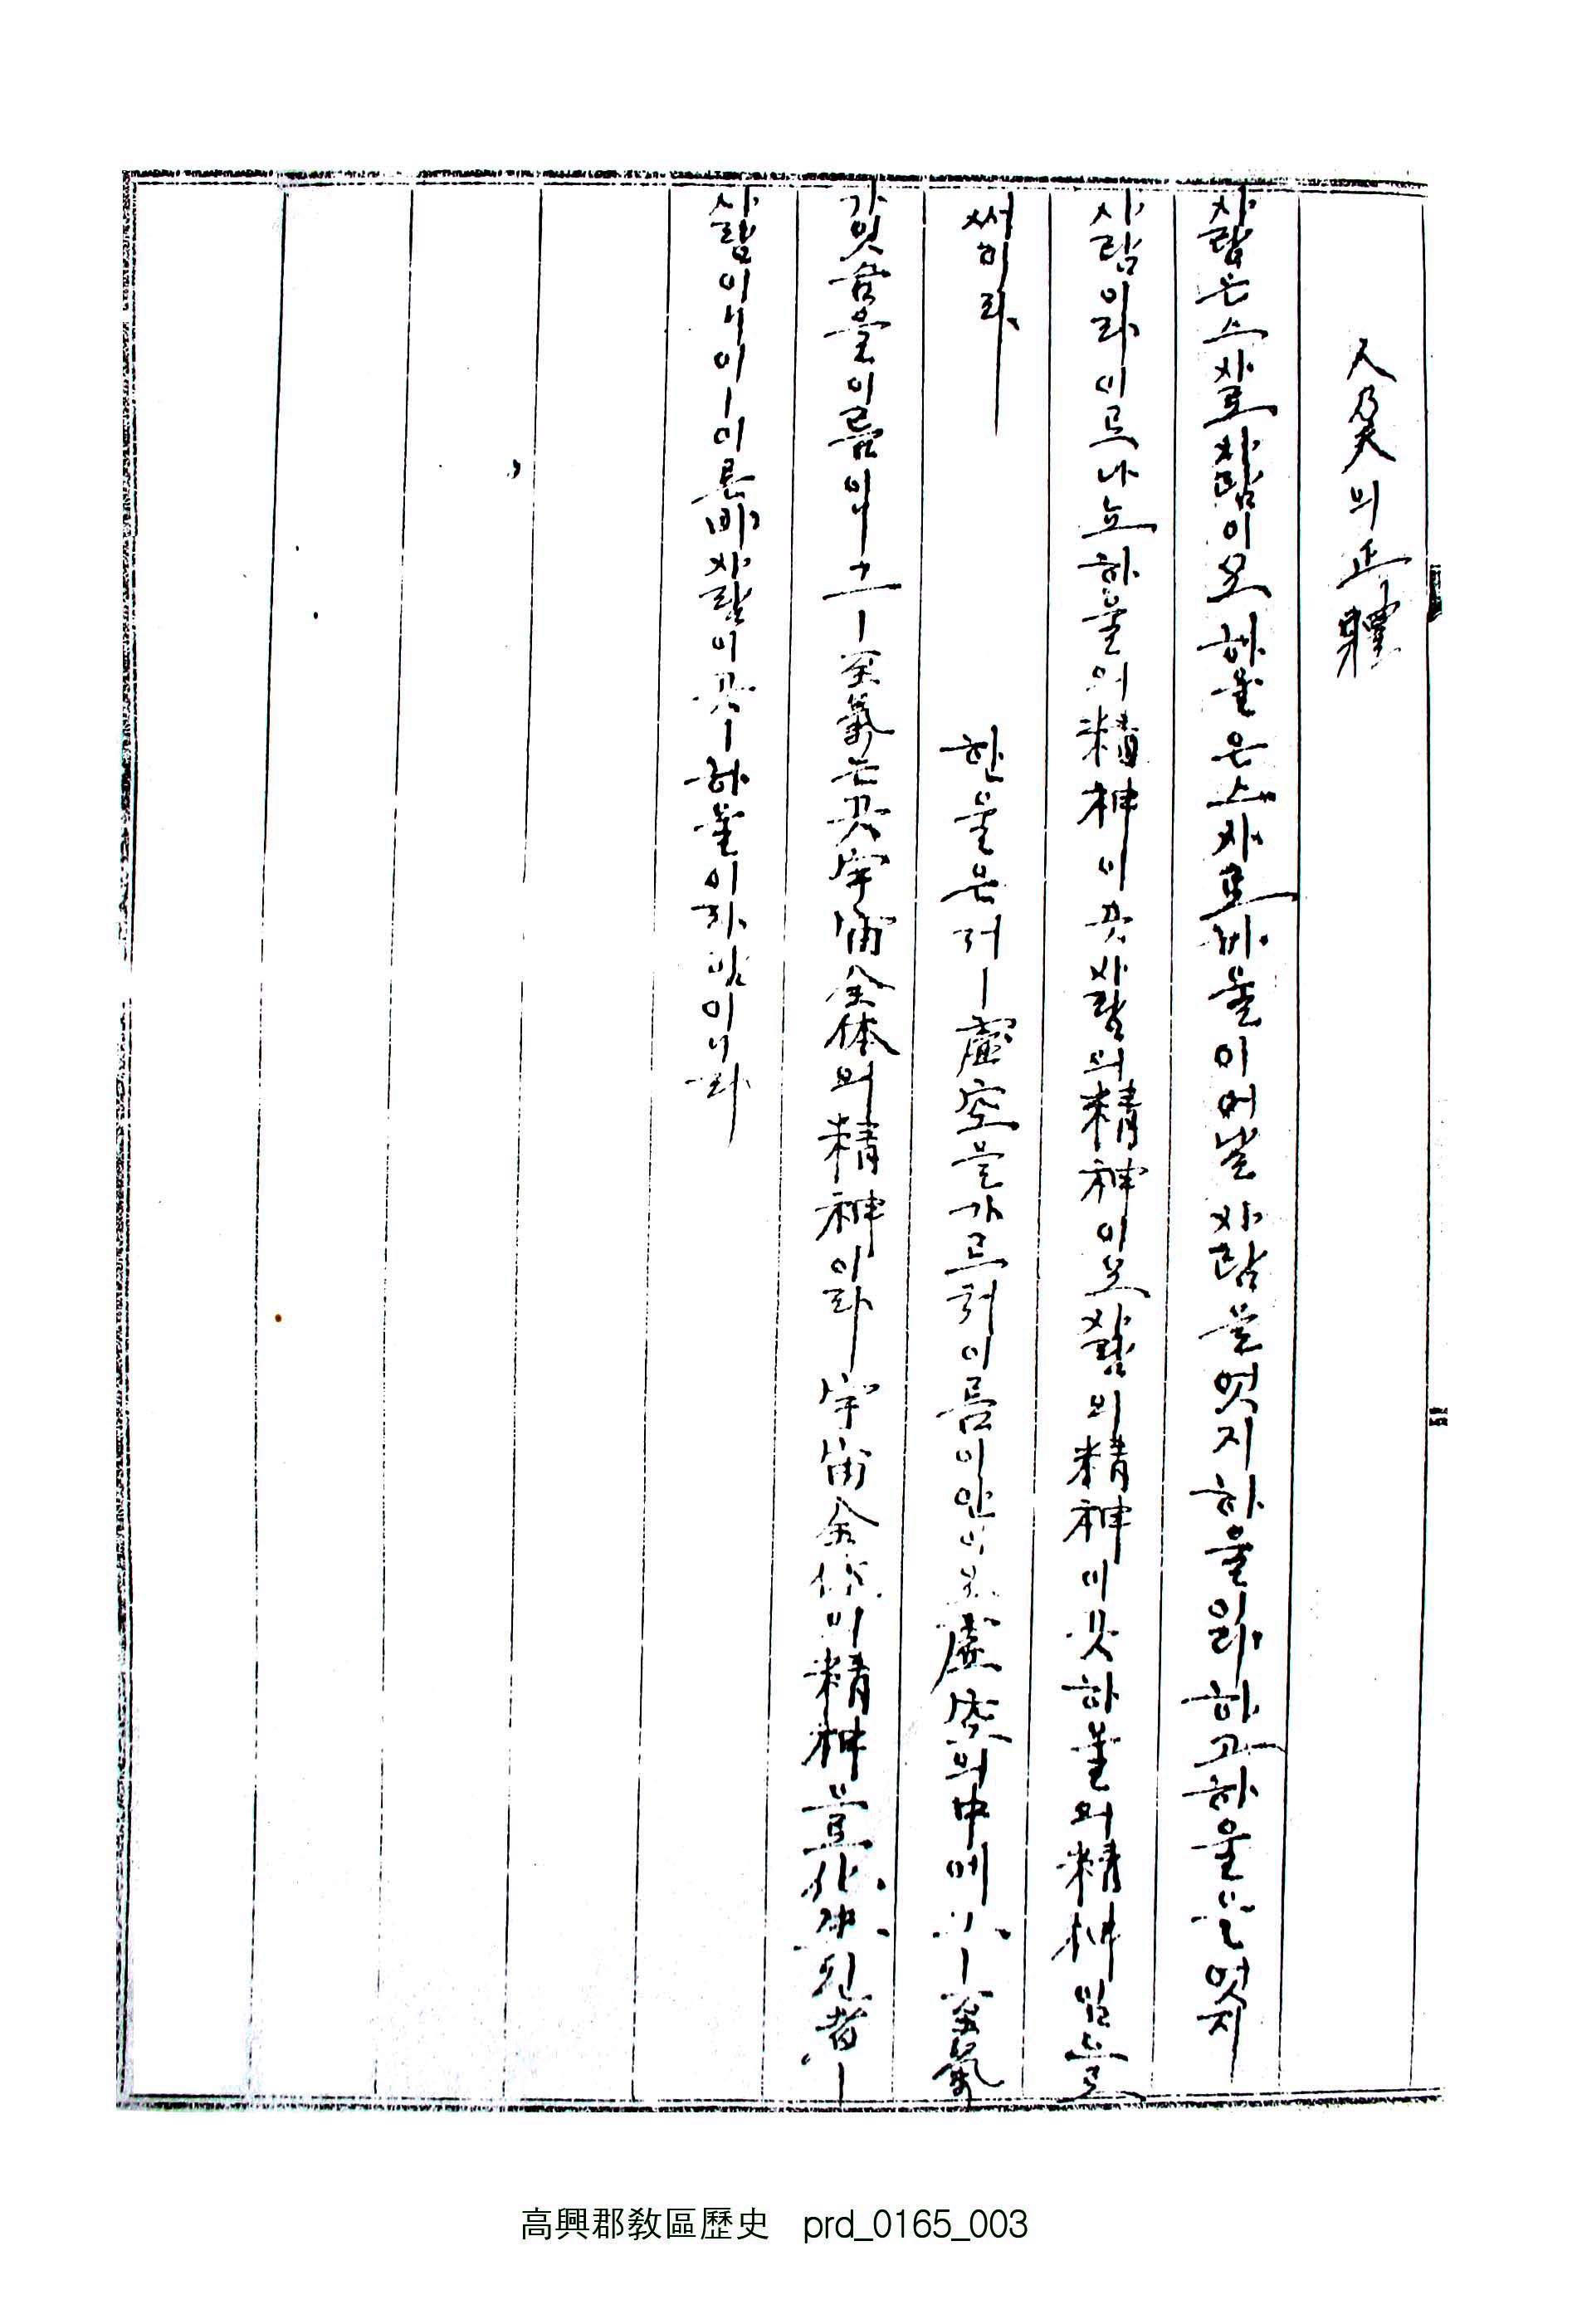 人乃天의 正體
사람은 스사로 사람이오 하울은 스사로 하울이어날 사람을 엇지 하울이라 하고 하울을 엇지
사람이라 이르나뇨 하울의 精神이 곳 사람의 精神이오 사람의 精神이 곳 하울의 精神일을
써이라
한울은 저 虛空을 가르처 이름이 안이오 虛空의 中에 至氣
가 잇슴을 이름이니 至氣는 곳 宇宙全体의 精神이라 宇宙全体의 精神을 한
사람이니 이 이른바 사람이 곳 하울이라 함이니라
高興郡敎區歷史 prd_0165_003